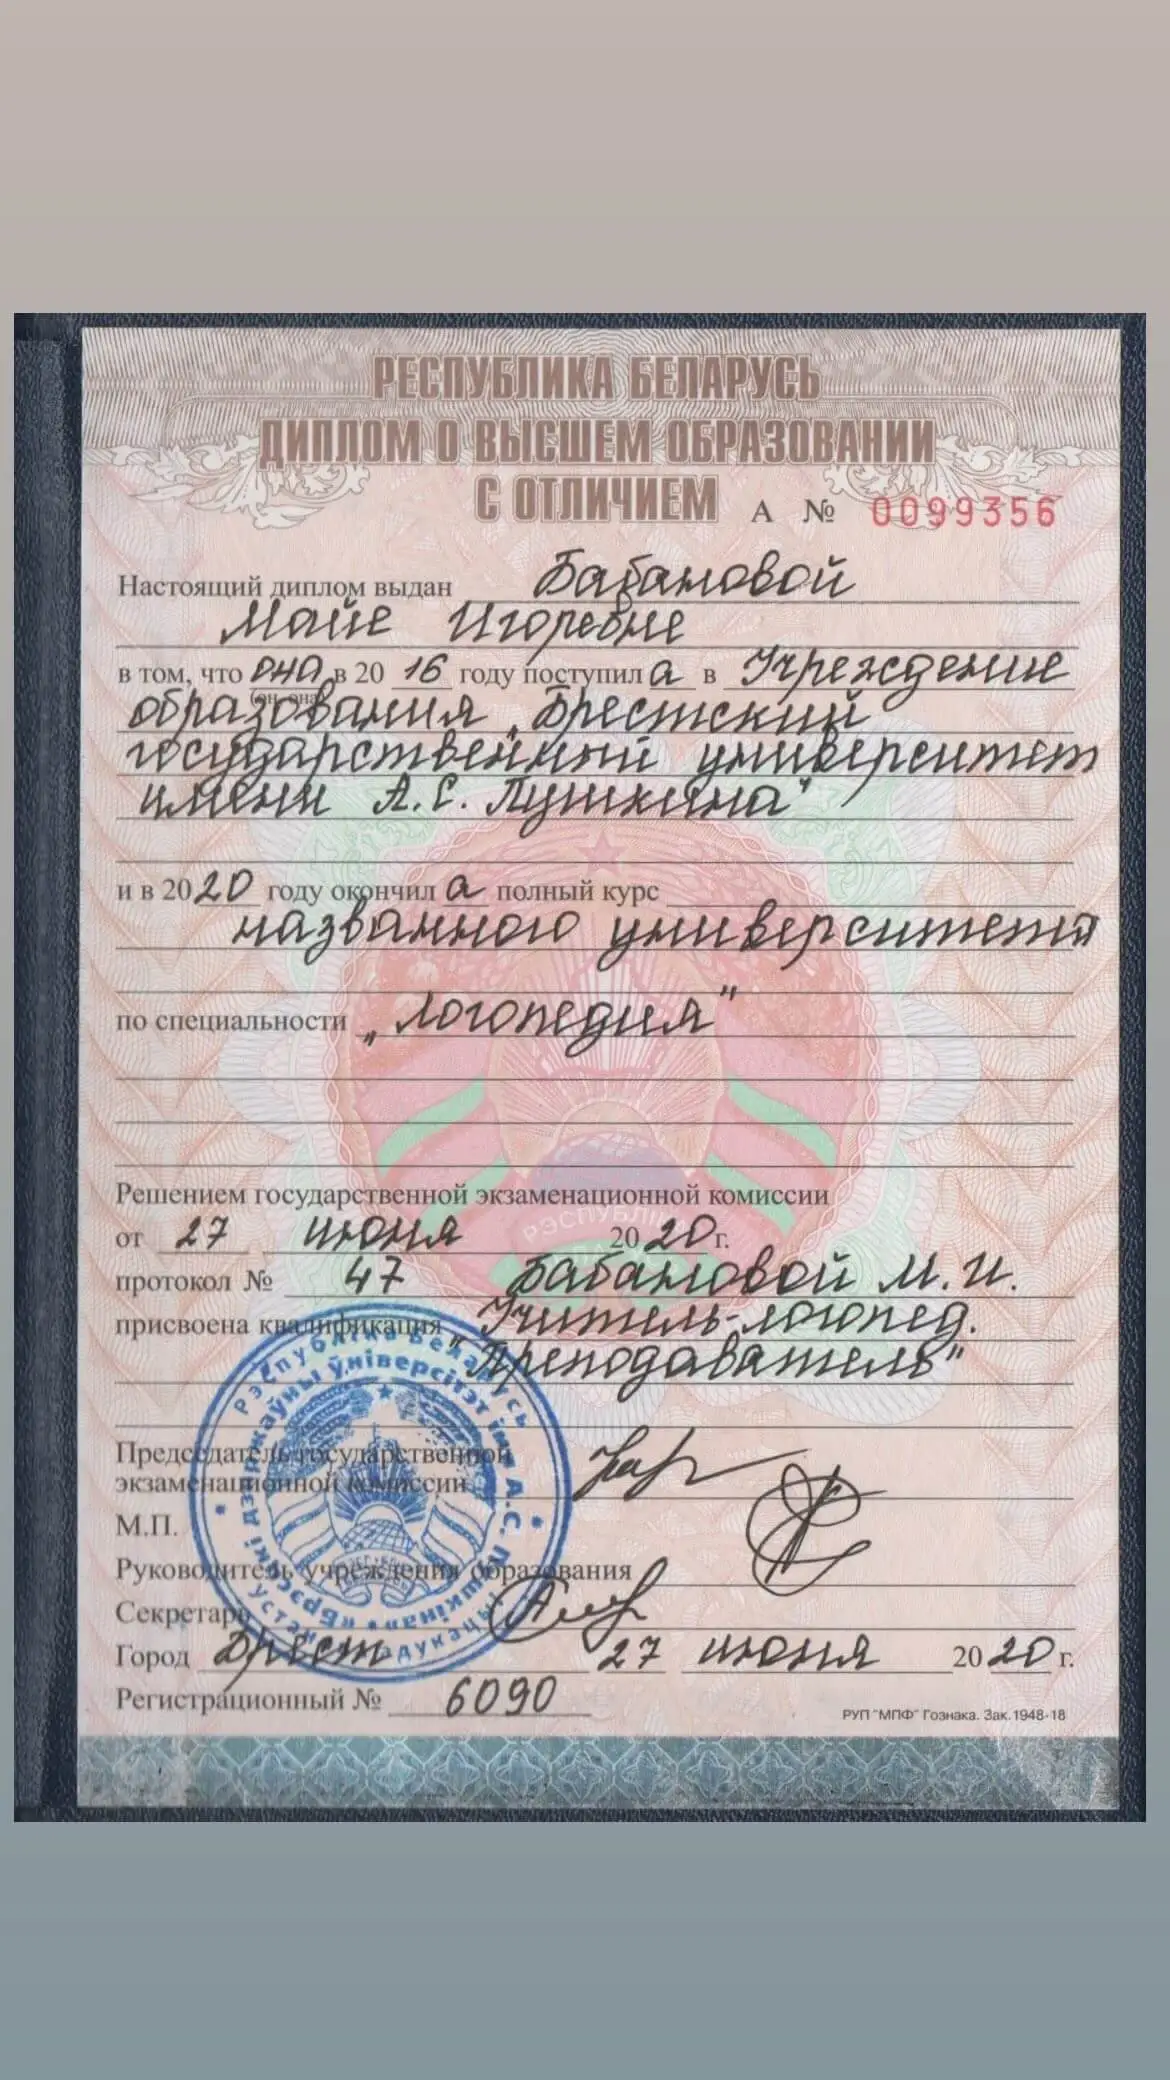 РЕСПУБЛИКА БЕЛАРУСЬ
ДИПЛОМ О ВЫСШЕМ ОБРАЗОВАНИИ
С ОТЛИЧИЕМ А № 0099356
Настоящий диплом выдан Бабановой
Майе Игоревне
в том, что она в 20 16 году поступил а в Учреждение
(он, она)
образования „Брестский
государственный университет
имени А.С. Пушкина"
и в 20 20 году окончил а полный курс
названного университета
по специальности „Логопедия"
Решением государственной экзаменационной комиссии
от 27 июня 20 20 г.
протокол № 47 Бабановой М.И.
присвоена квалификация „Учитель-логопед.
Преподаватель"
Председатель государственной
экзаменационной комиссии
М.П.
Руководитель учреждения образования
Секретарь
Город Брест 27 июня 20 20 г.
Регистрационный № 6090
РУП "МПФ" Гознака. Зак. 1948-18
РЭСПУБЛІКА
Рэспубліка Беларусь
дзяржаўны ўніверсітэт імя А.С. Пушкіна»